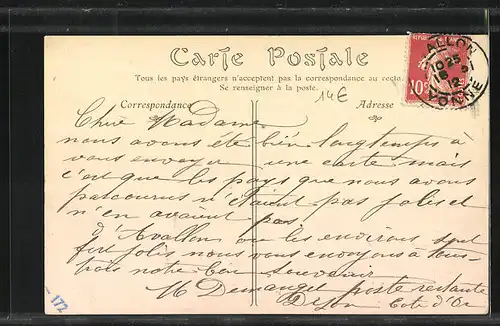 Carte Postale
Tous les pays étrangers n'acceptent pas la correspondance au recto.
Se renseigner à la poste.
14€
Correspondance
Adresse
10c
ALLON
10 25
12
YONNE
Chère Madame
nous avons été bien longtemps à
vous envoyer une carte mais
c'est que les pays que nous avons
parcourus n'étaient pas jolis et
n'en avaient pas
d'Avallon ou les environs sont
fort jolis nous vous envoyons à tous
trois notre bon souvenir
M Demangel poste restante
Dijon Cote d'Or
172